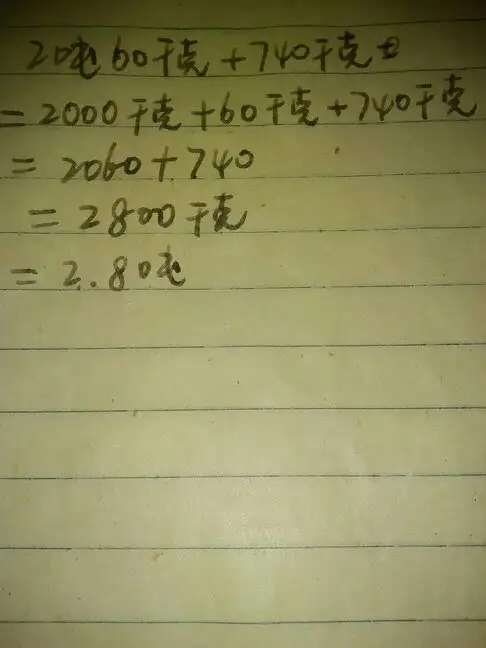 2吨60千克+740千克
=2000千克+60千克+740千克
=2060+740
=2800千克
=2.8吨